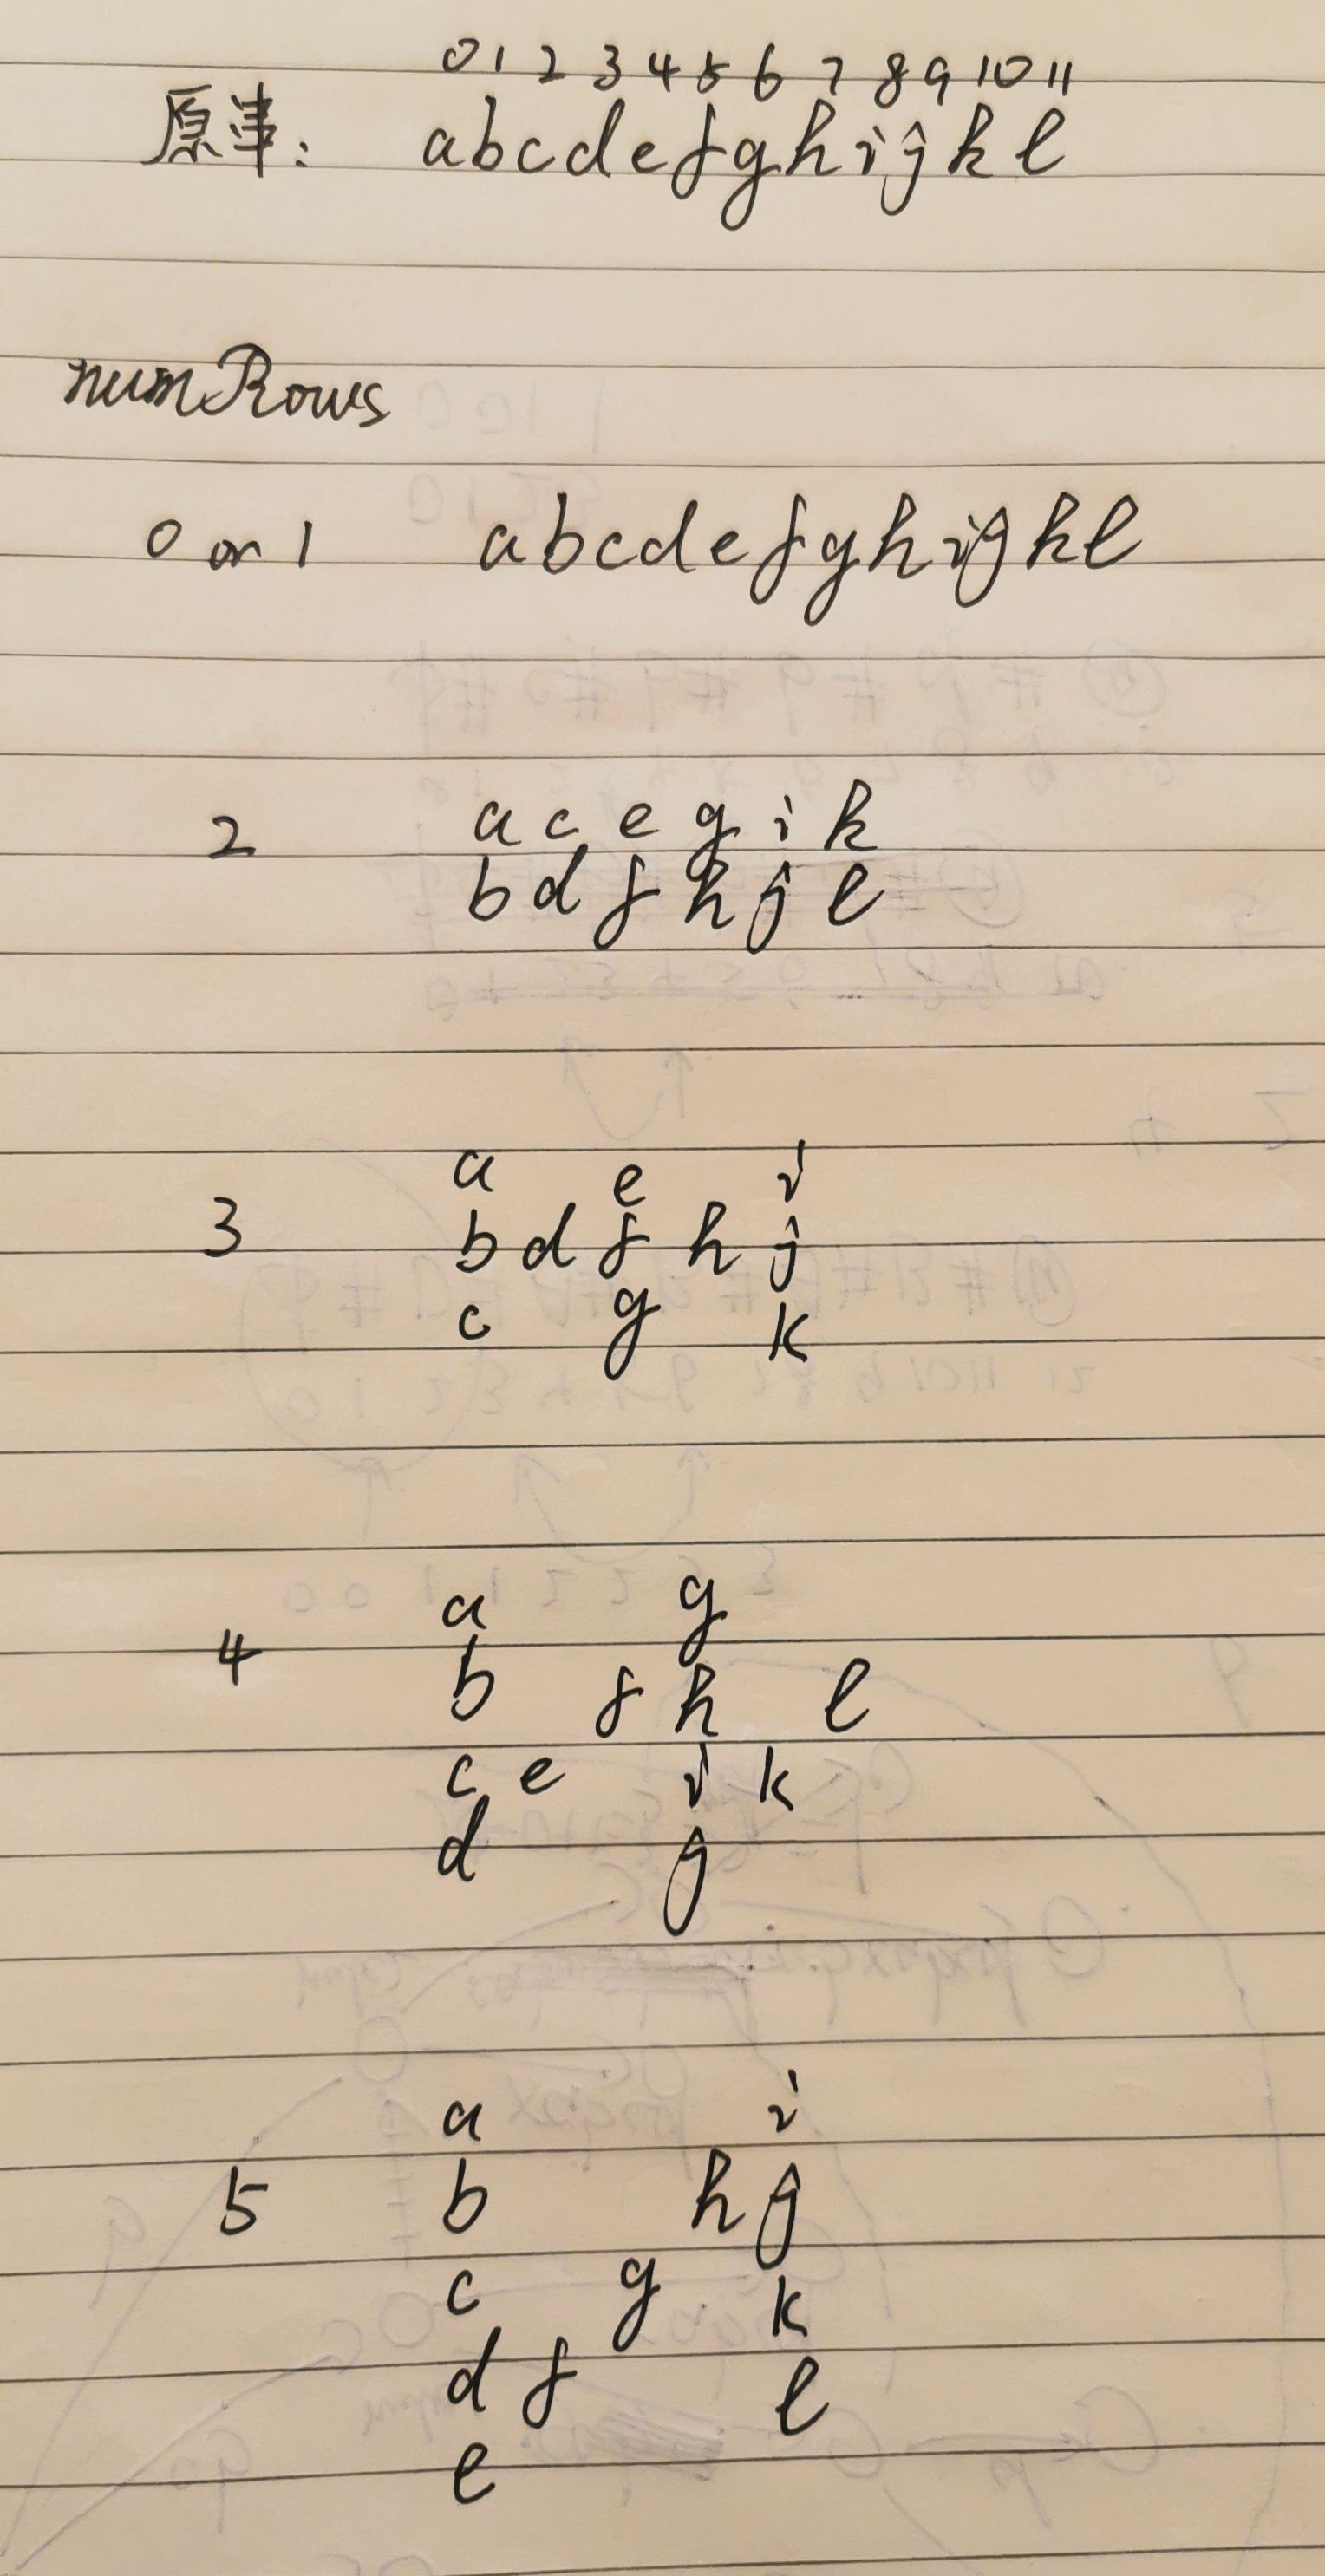 0 1 2 3 4 5 6 7 8 9 10 11
原串: abcdefghijkl
numRows
0 or 1 abcdefghijkl
2
a c e g i k
b d f h j l
3
a e i
b d f h j
c g k
4
a g
b f h l
c e i k
d j
5
a i
b h j
c g k
d f l
e